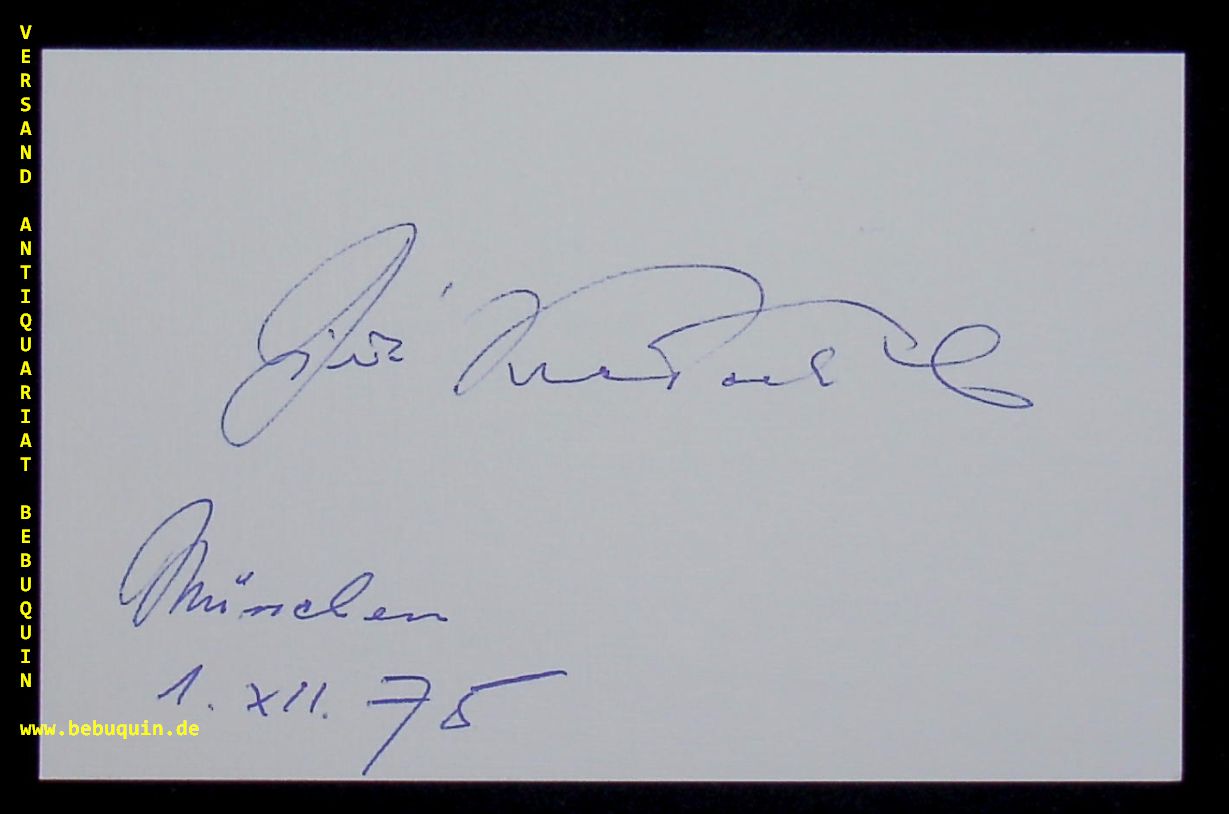 VERSAND ANTIQUARIAT BEBUQUIN
Jiří
München
1. XII. 75
www.bebuquin.de